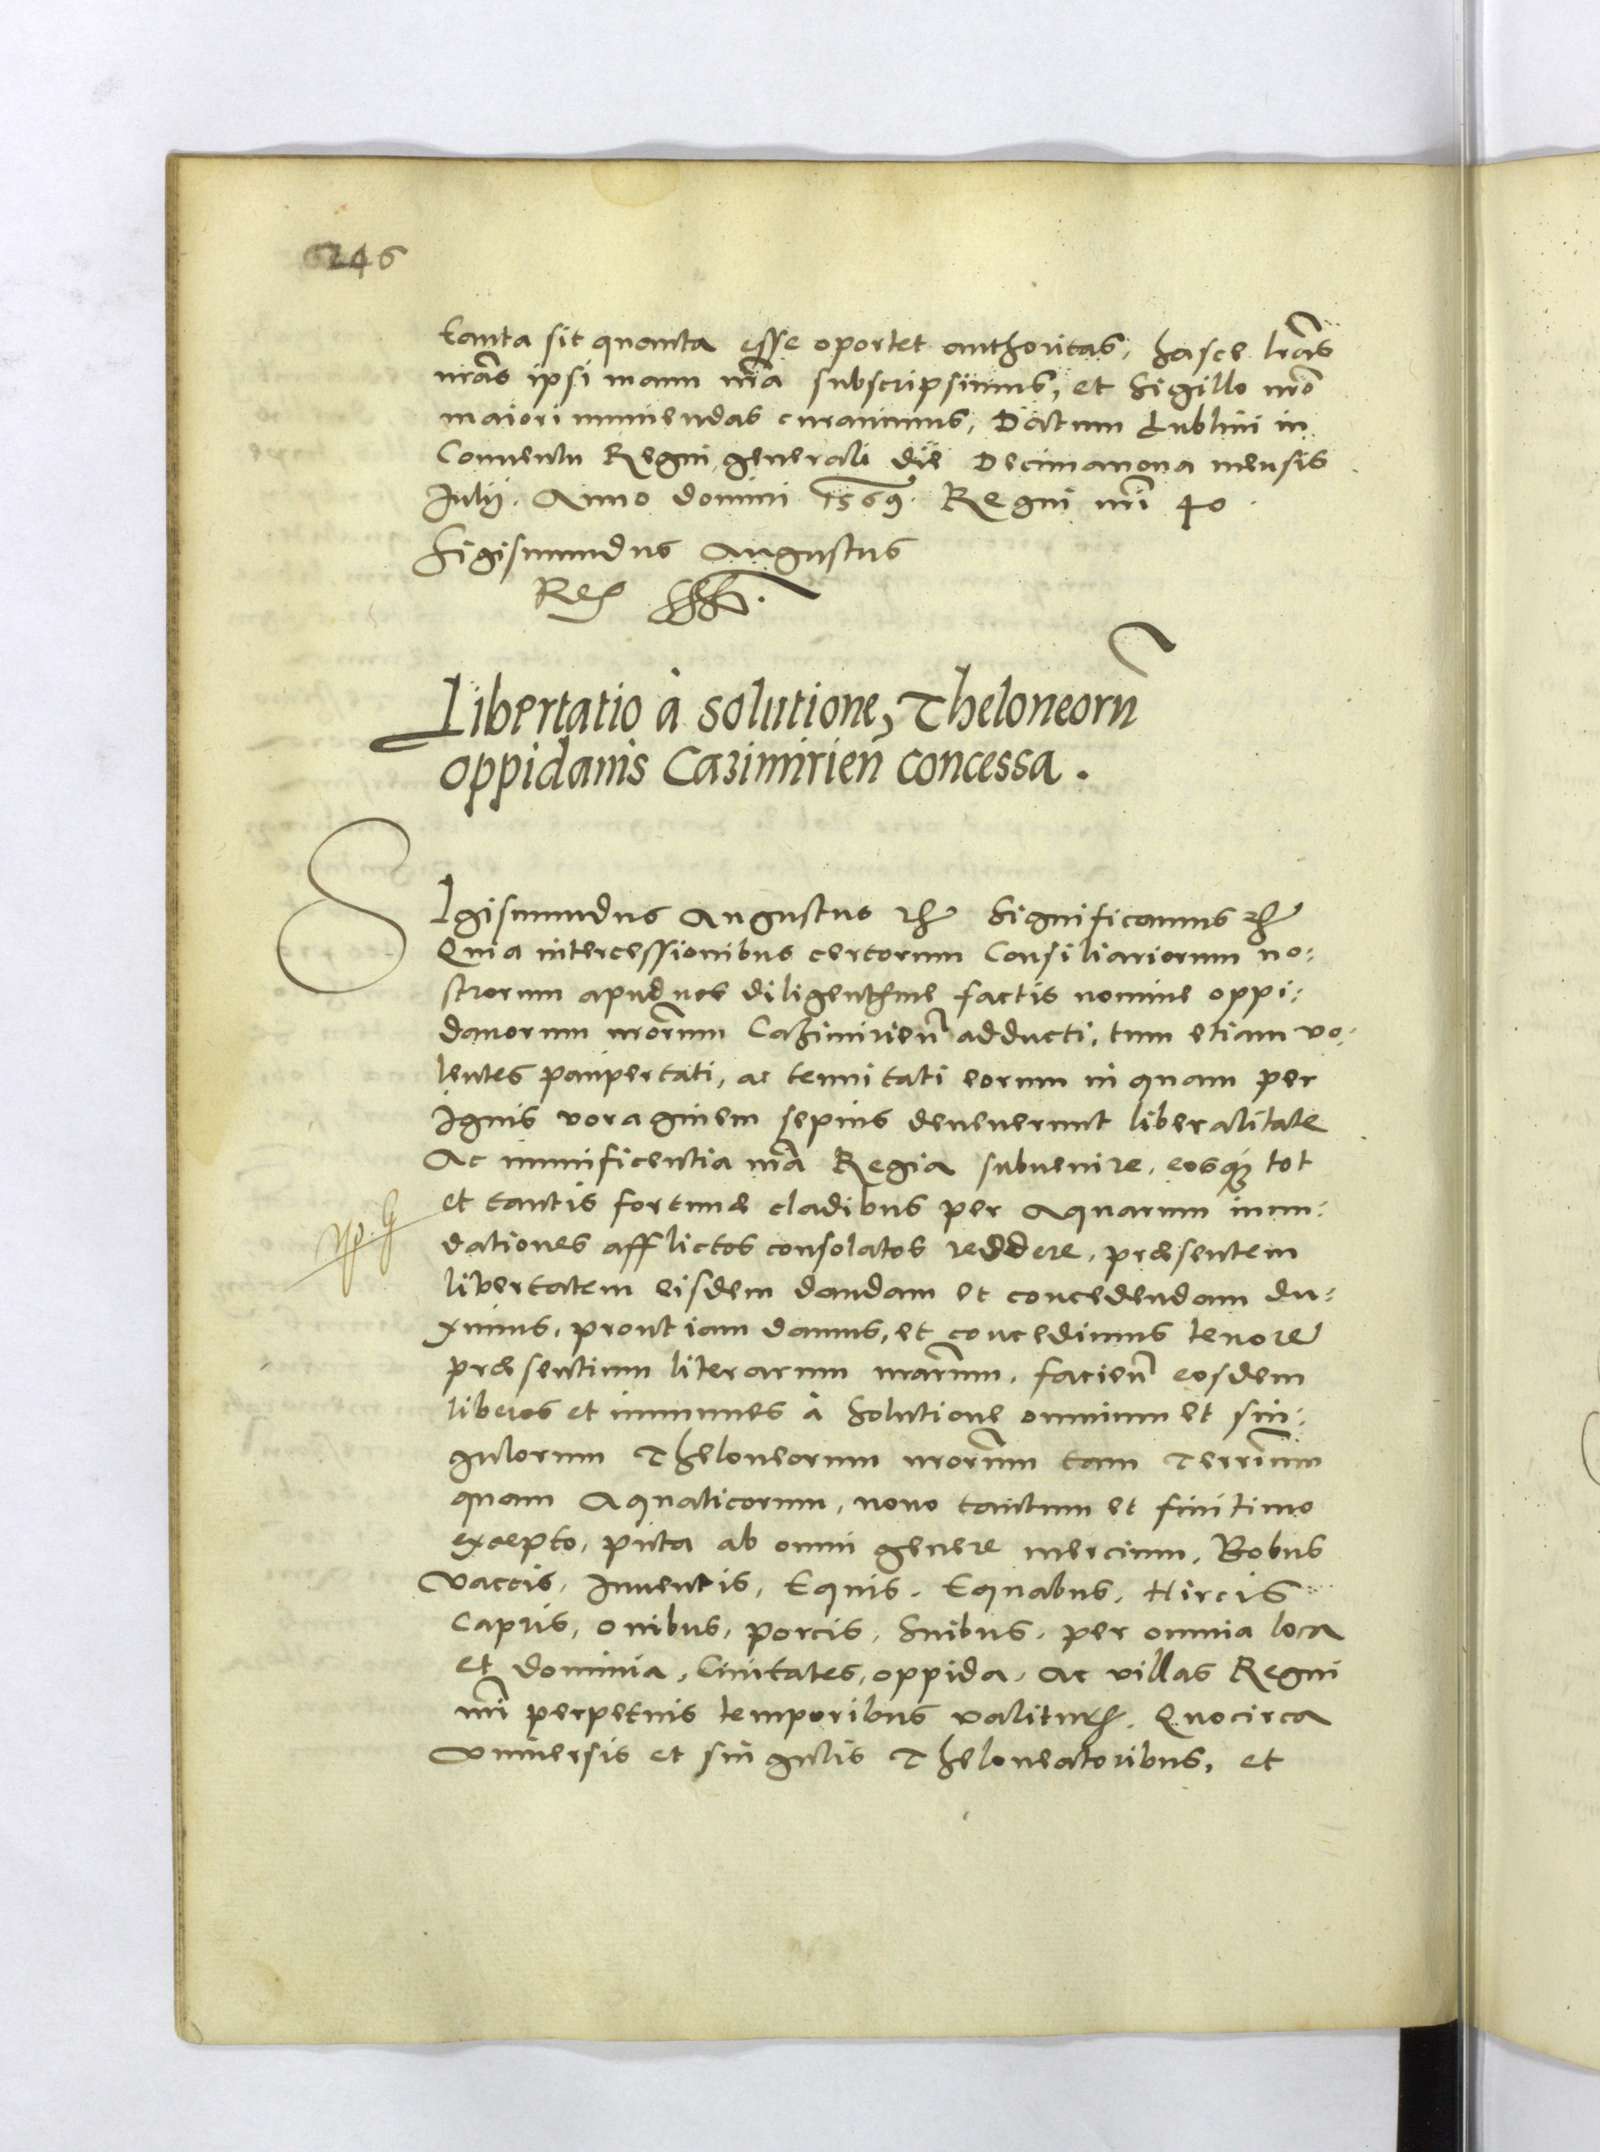 6246
tanta sit quanta esse oportet authoritas, hasce lras
nras ipsi manu nra subscripsimus, et Sigillo nro
maiori muniendas curauimus, Datum Lublini in
Conuentu Regni generali die Decimanona mensis
Iulij. Anno domini 1569. Regni nri 40.
Sigismundus Augustus
Rex
Libertatio à solutione, Theloneoru
oppidanis Cazimirien concessa.
SIgismundus Augustus etc Significamus etc
Quia intercessionibus certorum Consiliariorum no:
strorum apud nos diligentme factis nomine oppi:
danorum nrorum Cazimirien adducti, tum etiam vo:
lentes paupertati, ac tenuitati eorum in quam per
Ignis voraginem sepius deuenerunt liberalitate
Ac munificentia nra Regia subuenire, eosq tot
et tantis fortunæ cladibus per Aquarum inun:
dationes afflictos consolatos reddere, præsentem
libertatem eisdem dandam et concedendam du:
ximus, prout iam damus, et concedimus tenore
præsentium literarum nrarum, facien eosdem
liberos et immunes à Solutione omnium et sin:
gulorum Theloneorum nrorum tam Terrium
quam Aquaticorum, nouo tantum et finitimo
excepto, puta ab omni genere mercium, Bobus
Vaccis, Iuuencis, Equis, Equabus, Hircis
Capris, ouibus, porcis, Suibus, per omnia loca
et dominia, Ciuitates, oppida, Ac villas Regni
nri perpetuis temporibus valitur. Quocirca
Vniuersis et singulis Theloneatoribus, et